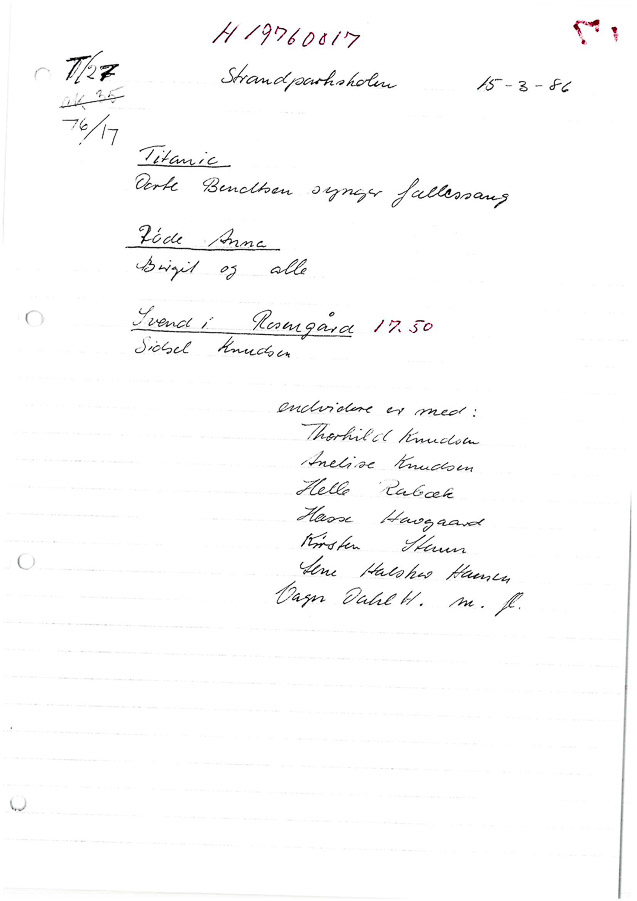 H 19760017
T/27
ak 35
76/17
Strandparksholen 15-3-86
Titanic
Dorte Bendtsen synger fællessang
Røde Anna
Birgit og alle
Svend i Rosengård 17.50
Sidsel Knudsen
endvidere er med:
Thorhild Knudsen
Anelise Knudsen
Helle Rabæk
Hasse Havgaard
Kirsten
Lene Halskov Hansen
Vagn Dahl H. m. fl.